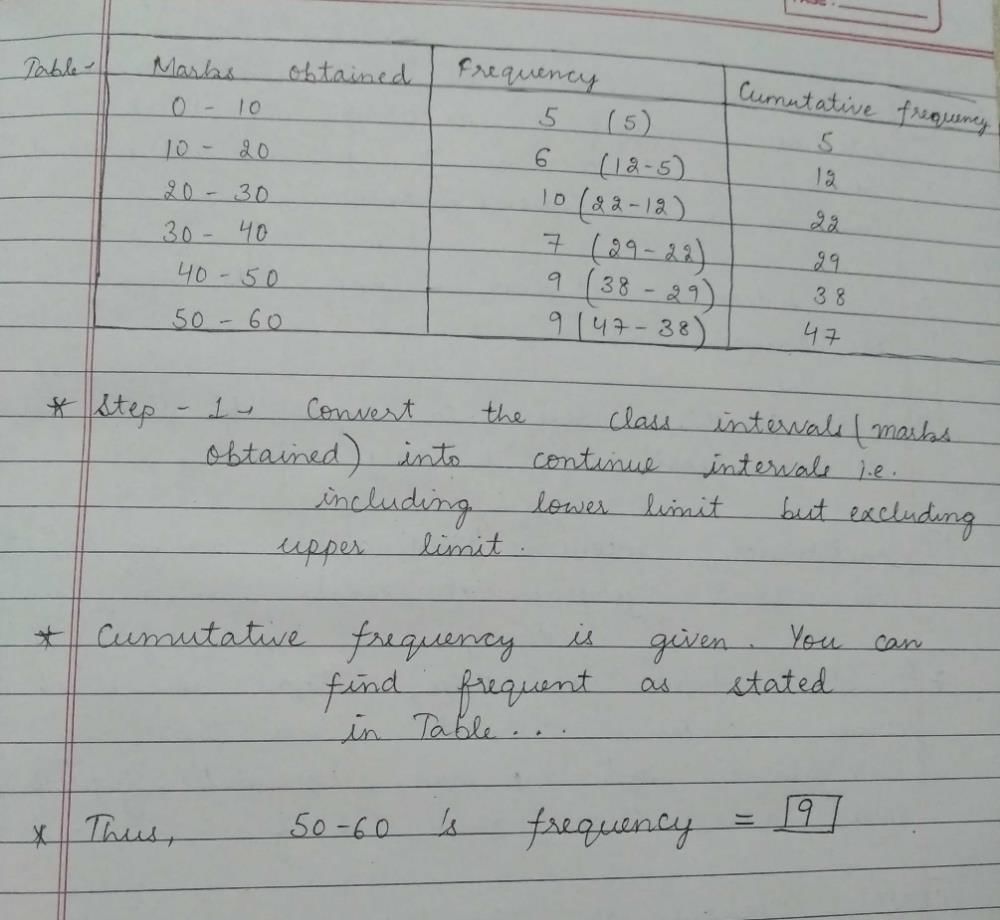 PAGE :
Table - Marks obtained Frequency Cumutative frequency
0 - 10 5 (5) 5
10 - 20 6 (12-5) 12
20 - 30 10 (22-12) 22
30 - 40 7 (29-22) 29
40 - 50 9 (38 - 29) 38
50 - 60 9 (47-38) 47
* Step - 1 → Convert the class intervals (marks
obtained) into continue intervals i.e.
including lower limit but excluding
upper limit.
* Cumutative frequency is given. You can
find frequent as stated
in Table...
* Thus, 50-60 's frequency = 9